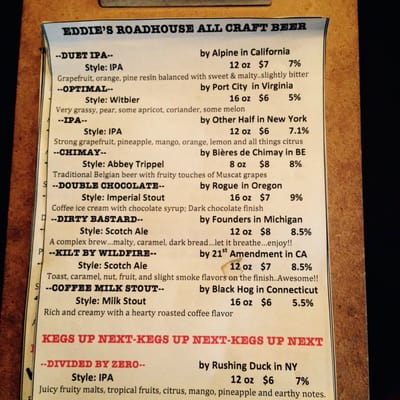 EDDIE'S ROADHOUSE ALL CRAFT BEER
--DUET IPA-- by Alpine in California
Style: IPA 12 oz $7 7%
Grapefruit, orange, pine resin balanced with sweet & malty..slightly bitter
--OPTIMAL-- by Port City in Virginia
Style: Witbier 16 oz $6 5%
Very grassy, pear, some apricot, coriander, some melon
--IPA-- by Other Half in New York
Style: IPA 12 oz $6 7.1%
Strong grapefruit, pineapple, mango, orange, lemon and all things citrus
--CHIMAY-- by Bières de Chimay in BE
Style: Abbey Trippel 8 oz $8 8%
Traditional Belgian beer with fruity touches of Muscat grapes
--DOUBLE CHOCOLATE-- by Rogue in Oregon
Style: Imperial Stout 16 oz $7 9%
Coffee ice cream with chocolate syrup; Dark chocolate finish
--DIRTY BASTARD-- by Founders in Michigan
Style: Scotch Ale 12 oz $8 8.5%
A complex brew...malty, caramel, dark bread...let it breathe...enjoy!!
--KILT BY WILDFIRE-- by 21st Amendment in CA
Style: Scotch Ale 12 oz $7 8.5%
Toast, caramel, nut, fruit, and slight smoke flavors on the finish..Awesome!!
--COFFEE MILK STOUT-- by Black Hog in Connecticut
Style: Milk Stout 16 oz $6 5.5%
Rich and creamy with a hearty roasted coffee flavor
KEGS UP NEXT-KEGS UP NEXT-KEGS UP NEXT
--DIVIDED BY ZERO-- by Rushing Duck in NY
Style: IPA 12 oz $6 7%
Juicy fruity malts, tropical fruits, citrus, mango, pineapple and earthy notes.